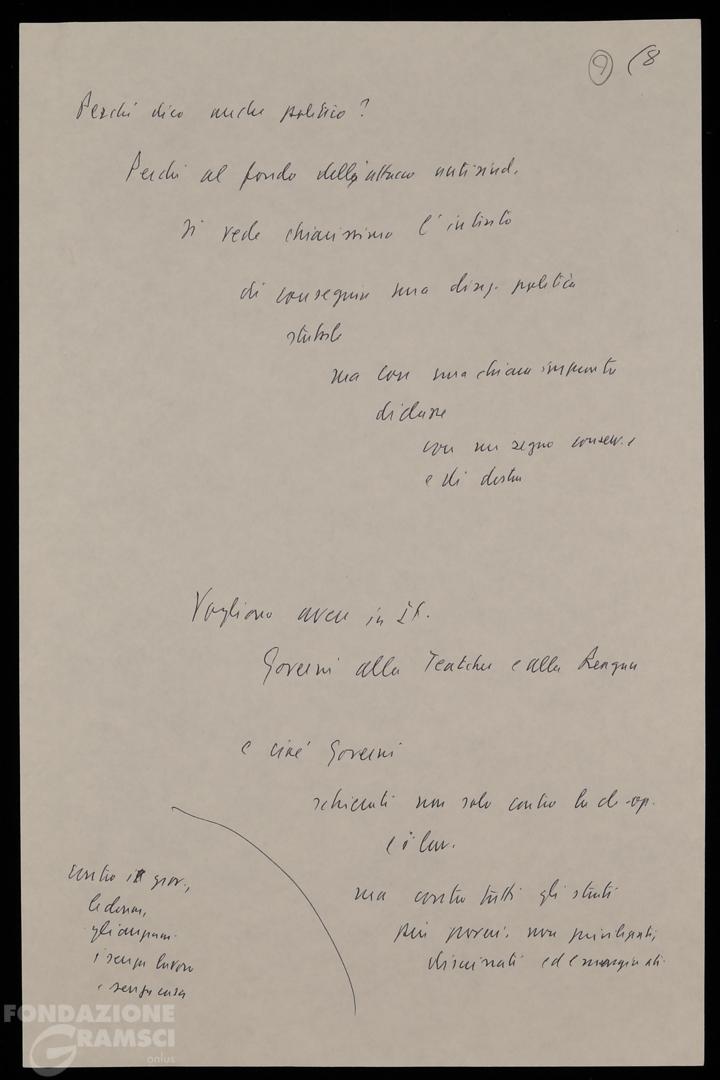 9 (8
Perché dico anche politico?
Perché al fondo dell'attacco antisind.
si vede chiarissimo l'intento
di conseguire una politica
stabile
ma con una chiara impronta
di classe
con un segno conserv. e
e di destra
Vogliono avere in It.
Governi alla Teatcher e alla Reagan
e cioè Governi
schierati non solo contro la cl-op.
e i lav.
ma contro tutti gli strati
più poveri, non privilegiati,
discriminati ed emarginati.
contro i giov.,
le donne,
gli anziani
i senza lavoro
e senza casa
FONDAZIONE
GRAMSCI
onlus